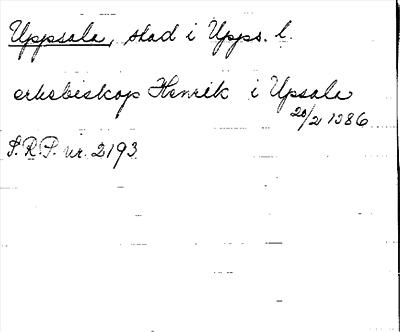 Uppsala, stad i Upps. l.
erkebiskop Henrik i Upsala
20/2 1386
S.R.P. nr. 2193.